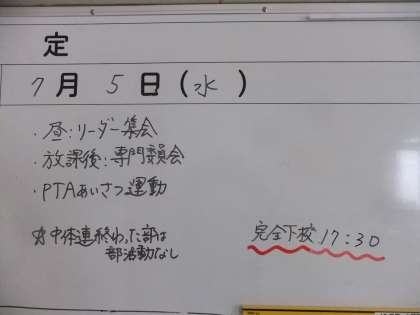 定
7月 5日(水)
・昼:リーダー集会
・放課後:専門委員会
・PTAあいさつ運動
☆中体連終わった部は
部活動なし
完全下校 17:30